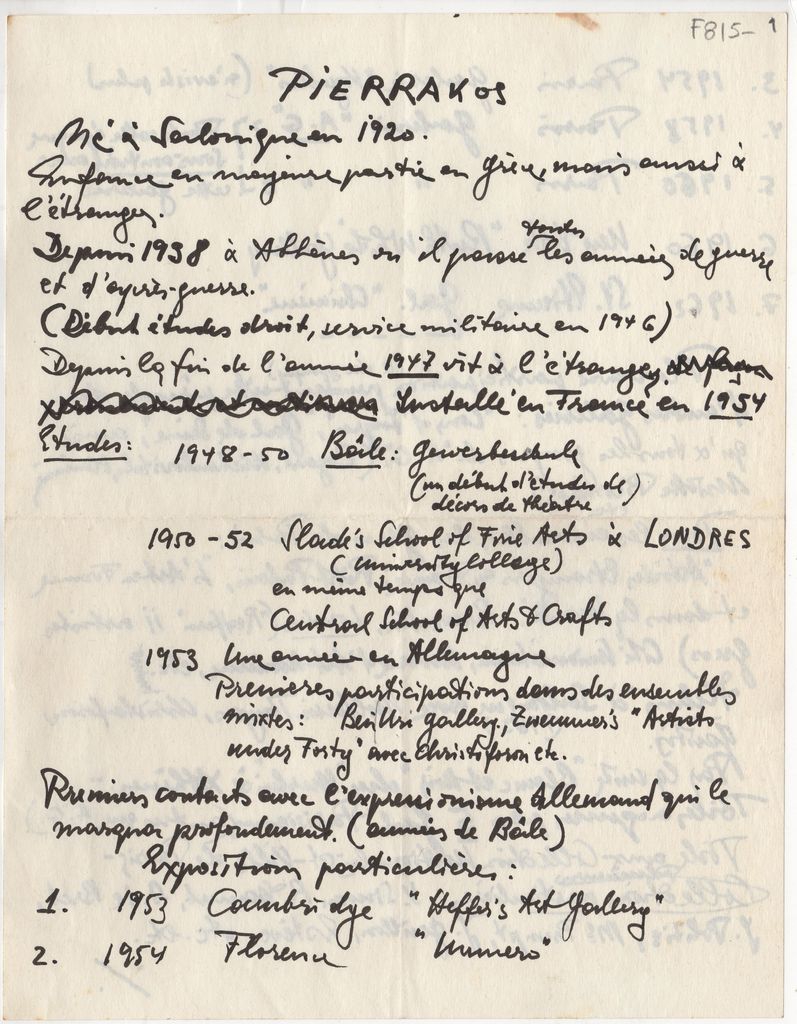 F815- 1
PIERRAKOS
Né à Salonique en 1920.
Enfance en majeure partie en Grèce, mais aussi à
l'étranger.
Depuis 1938 à Athènes où il passe toutes les années de guerre
et d'après-guerre.
(Début études droit, service militaire en 1946)
Depuis la fin de l'année 1947 vit à l'étranger,
Installé en France en 1954
Etudes: 1948-50 Bâle: Gewerbeschule
(un début d'études de)
décors de théâtre
1950-52 Slade's School of Fine Arts à LONDRES
(University College)
en même temps que
Central School of Arts & Crafts
1953 Une année en Allemagne
Premieres participations dans des ensembles
mixtes: Ben Uri gallery, Zwemmer's "Artists
under Forty" avec Christoforou etc.
Premiers contacts avec l'expressionisme Allemand qui le
marqua profondement. (années de Bâle)
Expositions particulières:
1. 1953 Cambridge "Heffer's Art Gallery"
2. 1954 Florence "Numero"